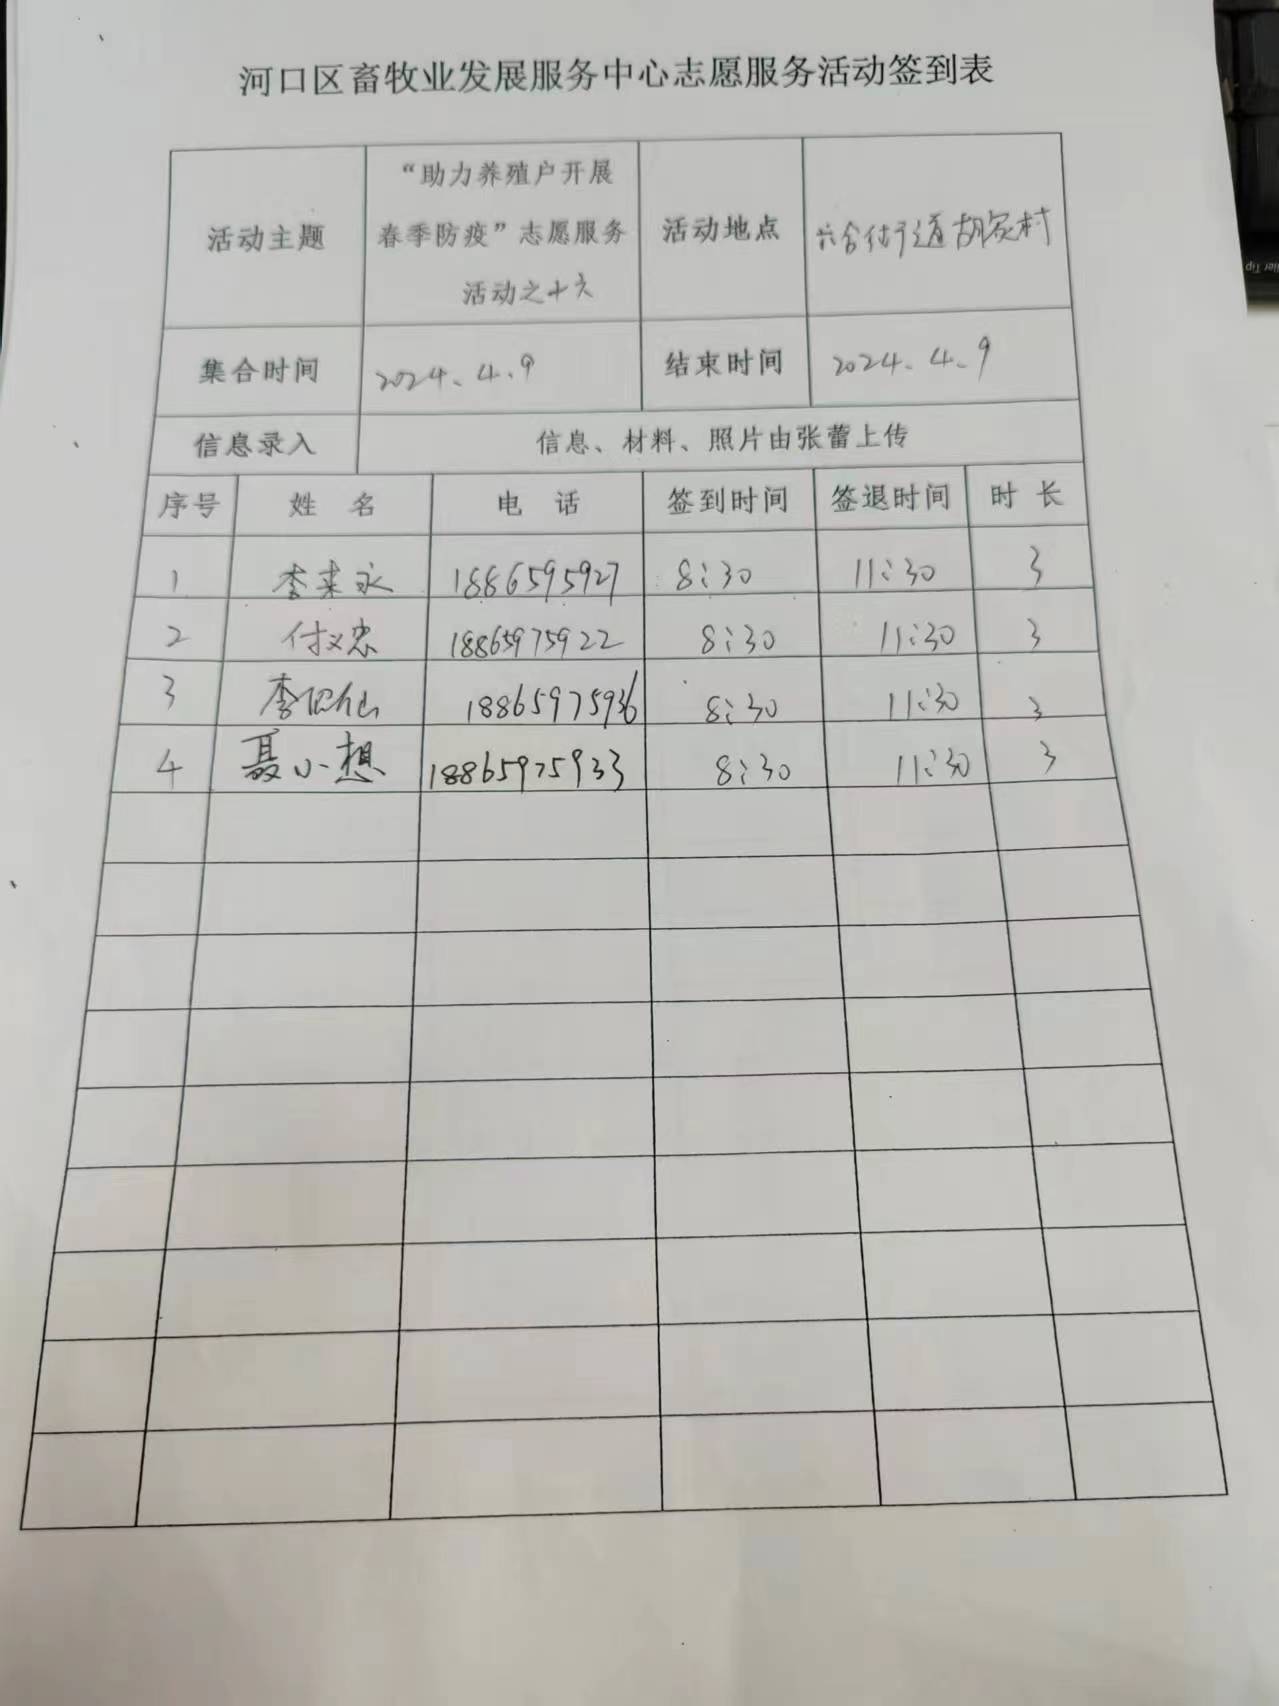 河口区畜牧业发展服务中心志愿服务活动签到表
活动主题 “助力养殖户开展春季防疫”志愿服务活动之十六 活动地点 六合街道胡家村
集合时间 2024.4.9 结束时间 2024.4.9
信息录入 信息、材料、照片由张蕾上传
序号 姓 名 电 话 签到时间 签退时间 时 长
1 李来永 1886595927 8:30 11:30 3
2 付义忠 18865975922 8:30 11:30 3
3 18865975936 8:30 11:30 3
4 聂小想 18865975933 8:30 11:30 3